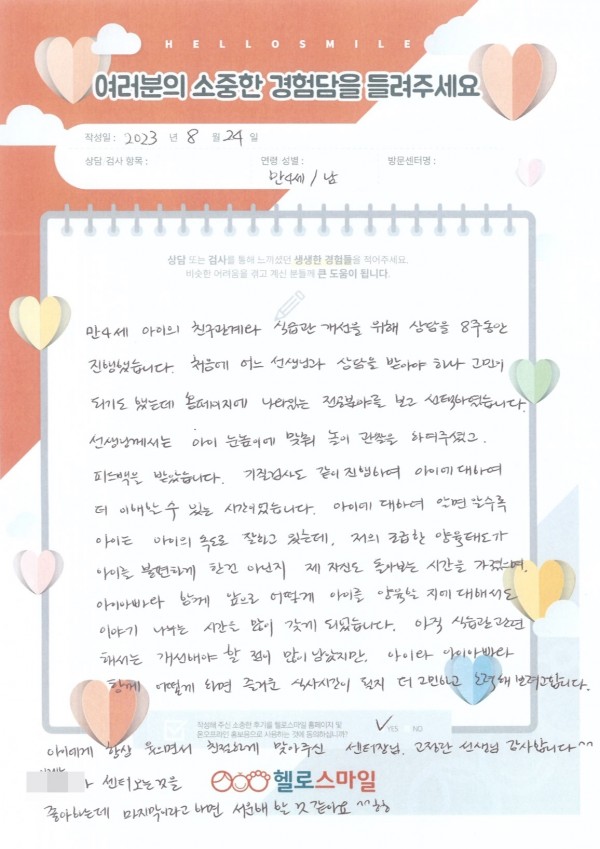 HELLOSMILE
여러분의 소중한 경험담을 들려주세요
작성일 : 2023 년 8 월 24 일
상담 검사 항목 : 연령 성별 : 방문센터명 :
만4세 / 남
상담 또는 검사를 통해 느끼셨던 생생한 경험들을 적어주세요.
비슷한 어려움을 겪고 계신 분들께 큰 도움이 됩니다.
만4세 아이의 친구관계와 식습관 개선을 위해 상담을 8주동안
진행했습니다. 처음에 어느 선생님과 상담을 받아야 하나 고민이
되기도 했는데 홈페이지에 나와있는 전공분야를 보고 선택하였습니다.
선생님께서는 아이 눈높이에 맞춰 놀이 관찰을 하여주셨고,
피드백을 받았습니다. 기질검사도 같이 진행하여 아이에 대하여
더 이해할 수 있는 시간이었습니다. 아이에 대하여 알면 알수록
아이는 아이의 속도로 잘하고 있는데, 저의 조급한 양육태도가
아이를 불편하게 한건 아닌지 제 자신도 돌아보는 시간을 가졌으며,
아이아빠와 함께 앞으로 어떻게 아이를 양육할 지에 대해서도
이야기 나누는 시간을 많이 갖게 되었습니다. 아직 식습관관련
해서는 개선해야 할 점이 많이 남았지만, 아이와 아이아빠와
함께 어떻게 하면 즐거운 식사시간이 될지 더 고민하고 노력해 보려고합니다.
작성해 주신 소중한 후기를 헬로스마일 홈페이지 및
온오프라인 홍보용으로 사용하는 것에 동의하십니까? YES NO
아이에게 항상 웃으면서 친절하게 맞아주신 센터장님, 고정란 선생님 감사합니다^^
가 센터오는것을
헬로스마일
좋아하는데 마지막이라고 하면 서운해 할 것 같아요 ^^